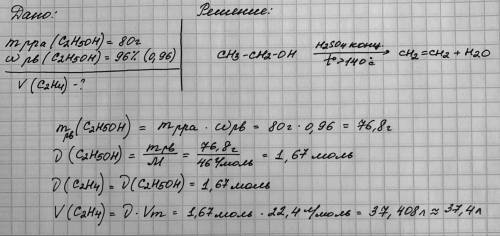 Дано:
Решение:
m рра (C2H5OH) = 80г
ω рв (C2H5OH) = 96% (0,96)
V (C2H4) - ?
CH3-CH2-OH H2SO4 конц. t°>140°C CH2=CH2 + H2O
m рв (C2H5OH) = m рра · ω рв = 80г · 0,96 = 76,8г
υ (C2H5OH) = m рв / M = 76,8г / 46 г/моль = 1,67 моль
υ (C2H4) = υ (C2H5OH) = 1,67 моль
V (C2H4) = υ · Vm = 1,67 моль · 22,4 л/моль = 37,408 л ≈ 37,4 л